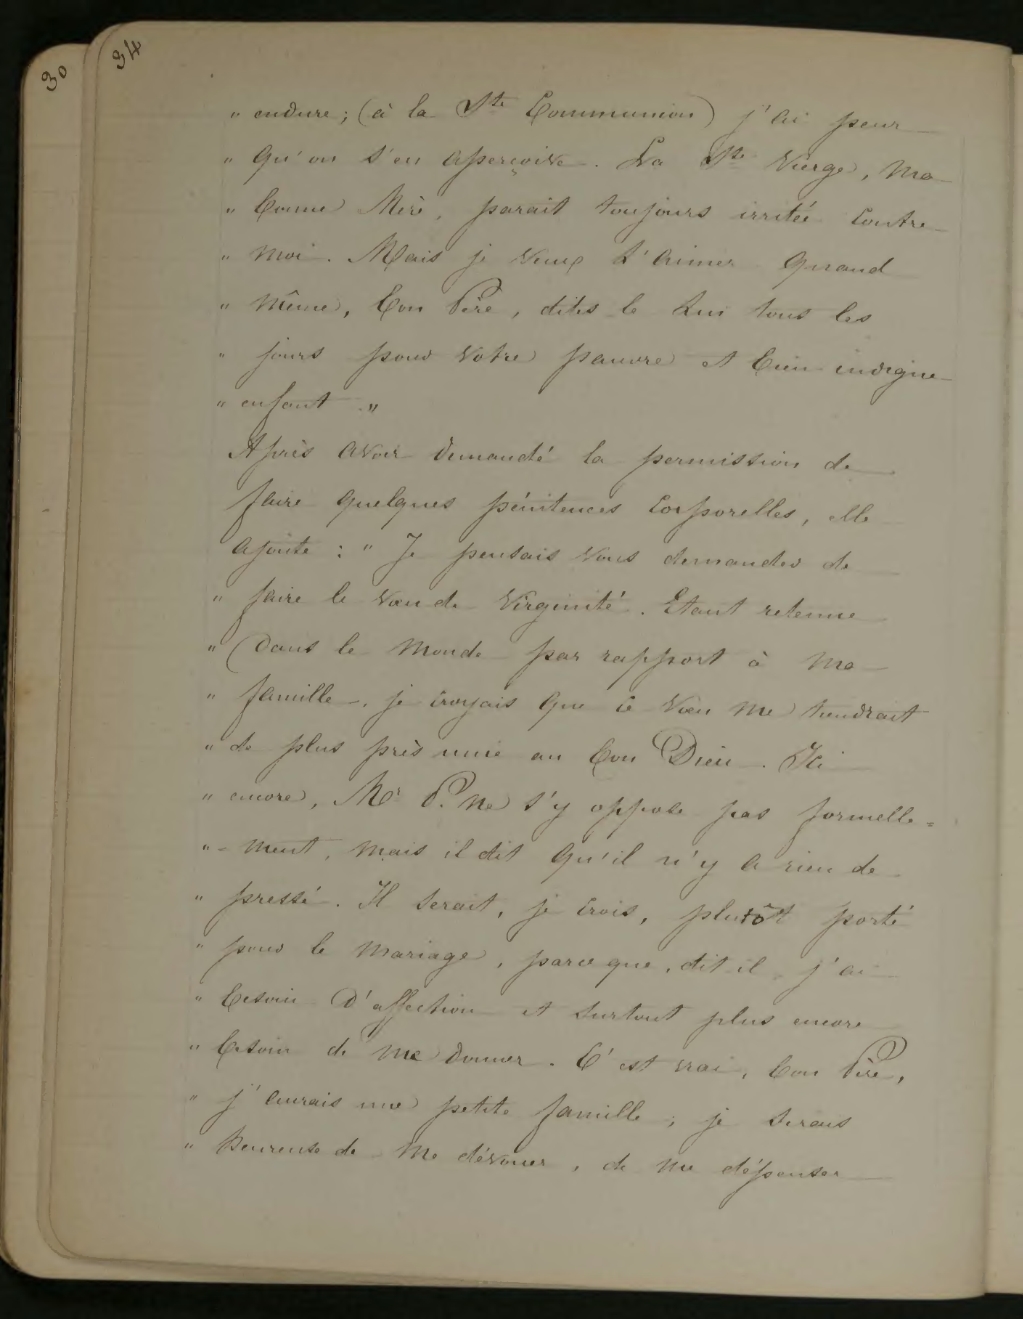 30
34
" endure; (à la Ste Communion) j'ai peur
" qu'on s'en aperçoive. La Ste Vierge, ma
" bonne Mère, parait toujours irritée contre
" moi. Mais je veux L'aimer quand
" même, bon Père, dites le Lui tous les
" jours pour votre pauvre et bien indigne
" enfant ."
Après avoir demandé la permission de
faire quelques pénitences corporelles, elle
ajoute : " Je pensais vous demander de
" faire le vœu de Virginité. Etant retenue
" dans le monde par rapport à ma
" famille, je croyais que ce vœu me tiendrait
" de plus près unie au bon Dieu. Ici
" encore, Mr P. ne s'y oppose pas formelle=
" - ment, mais il dit qu'il n'y a rien de
" pressé. Il serait, je crois, plutôt porté
" pour le mariage, parce que, dit il, j'ai
" besoin d'affection et surtout plus encore
" besoin de me donner. C'est vrai, bon Père,
" j'aurais une petite famille, je serais
" heureuse de me dévouer, de me dépenser